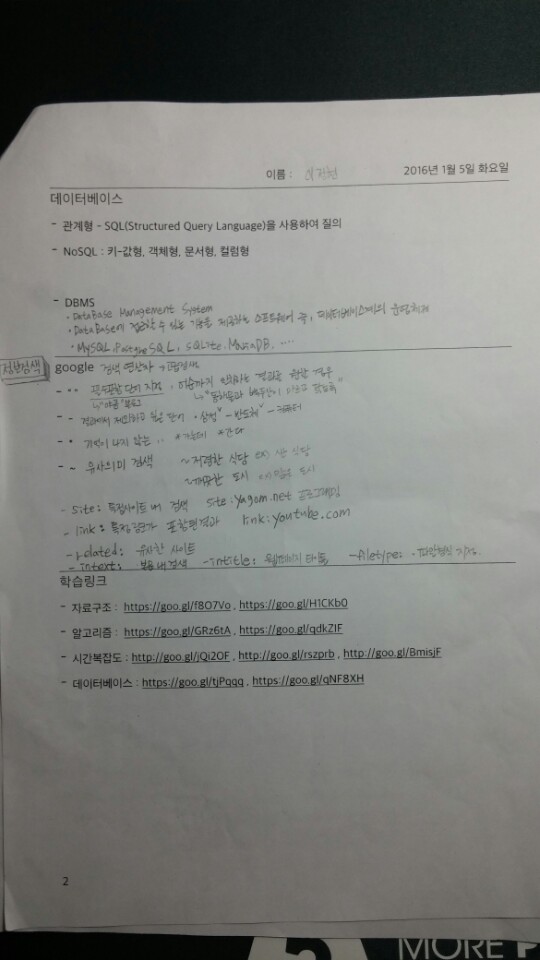 이름 :
2016년 1월 5일 화요일
데이터베이스
- 관계형 - SQL(Structured Query Language)을 사용하여 질의
- NoSQL : 키-값형, 객체형, 문서형, 컬럼형
- DBMS
• DataBase Management System
• DataBase에 접근할 수 있는 기능을 제공하는 소프트웨어 즉, 데이터베이스계의 운영체제
• MySQL, PostgreSQL, SQLite, MariaDB, ....
정보검색
google 검색 연산자
- " " 꼭 포함할 단어 지정, 어순까지 일치하는 결과를 원할 경우
- - 결과에서 제외하고 싶은 단어 • 삼성 -반도체 -컴퓨터
- * 기억이 나지 않는 ..
- ~ 유사의미 검색 ~저렴한 식당 싼 식당
~깨끗한 도시 도시
- site: 특정사이트 내 검색 site:yagom.net 프로그래밍
- link: 특정 링크가 포함된 결과 link:youtube.com
- related: 유사한 사이트
- intext: 본문 내 검색 - intitle: 웹페이지 타이틀 - filetype: 파일형식 지정
학습링크
- 자료구조 : https://goo.gl/f8O7Vo , https://goo.gl/H1CKb0
- 알고리즘 : https://goo.gl/GRz6tA , https://goo.gl/qdkZIF
- 시간복잡도 : http://goo.gl/jQi2OF , http://goo.gl/rszprb , http://goo.gl/BmisjF
- 데이터베이스 : https://goo.gl/tjPqqg , https://goo.gl/qNF8XH
2
MORE P